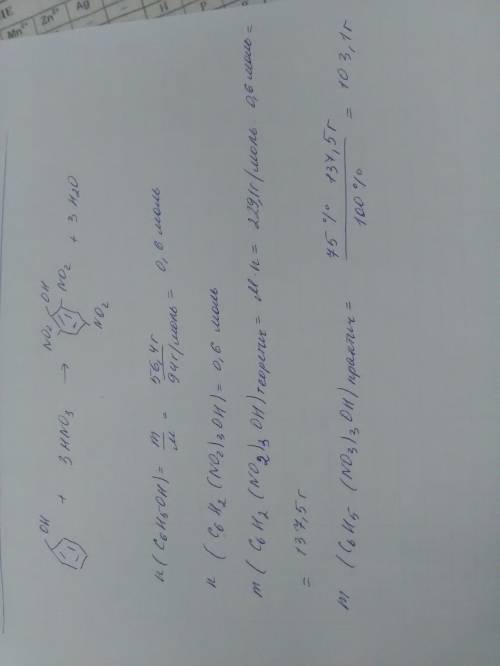 Mn²⁺ Zn²⁺ Ag
OH + 3HNO₃ → NO₂ OH NO₂ NO₂ + 3H₂O
n(C₆H₅OH) = m/M = 56,4г/94г/моль = 0,6 моль
n (C₆H₂(NO₂)₃OH) = 0,6 моль
m (C₆H₂(NO₂)₃OH) теоретич = M·n = 229,1г/моль · 0,6 моль =
= 137,5г
m (C₆H₅(NO₃)₃OH) практич = 75% 137,5г/100% = 103,1г